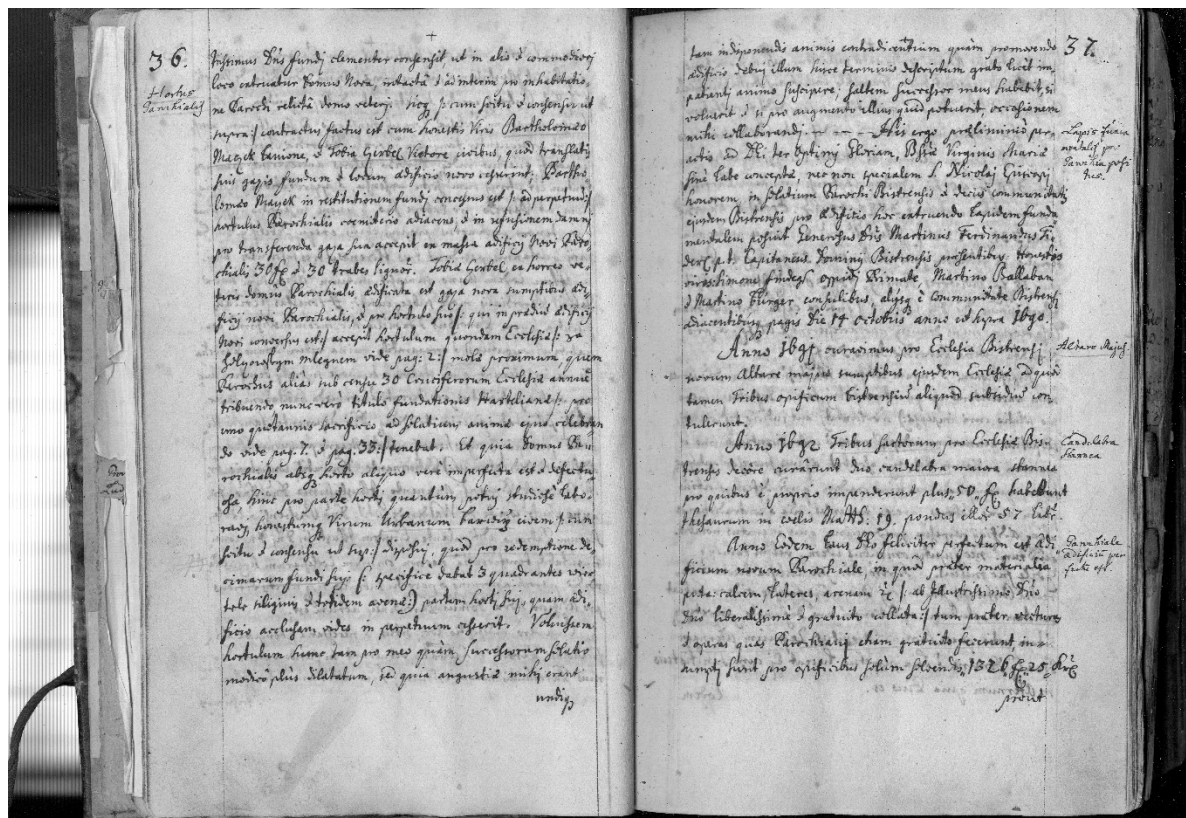 36.
Hortus
Parochialis
trissimus Dńs fundi clementer consensit ut in alio è commodiori
loco extruatur Domus Nova, intactâ è ad interim pro inhabitatio,
ne Parochi relictâ domo veteri. scitu è consensu ut
supra :/ contractus factus est cum honestis Viris Bartholomæo
Mayck Lanione, è Tobia Girbel Victore civibus, quod translatis
suis gazis, fundum è locum ædificio novo cesserint. Bartho
lomæo Mayck in restitutionem fundi concessus est /: ad perpetuum :/
hortulus Parochialis cœmiterio adiacens, è in refusionem damni
pro transferenda gaza sua accepit ex massa ædificij Novi Paro,
chialis 30 fl è 30 trabes lignor. Tobiæ Girbel ex horreo ve,
teris domus Parochialis, ædificata est gaza nova sumptibus ædi,
ficij novi Parochialis, è pro hortulo suo /: qui in prædiū ædificij
Novi conversus est :/ accepit hortulum quondam Ecclesiæ /: za
mleynem vide pag: 2 :/ molæ proximum, quem
Parochus aliàs sub censu 30 Cruciferorum Ecclesiæ annuè
tribuendo nunc verò titulo fundationis Hartelianæ /: pro
uno quotannis sacrificio ad solatium animæ ejus celebran
do vide pag. 7. è pag. 33. :/ tenebat. Et quia Domus Pa,
rochialis absq horto aliquo verè imperfecta est è defectu,
osa, hinc pro parte horti quantùm potui studiosè labo,
ravi, honestumq Virum Urbanum civem /: cum
scitu è consensu ut sup: :/ disposui, quod pro redemptione de,
cimarum fundi sui /: specificè dabat 3 quadrantes
tele siliginis è totidem avenæ :/ partem horti sui, quam ædi,
ficio acclusam vides in perpetuum cesserit. Voluissem
hortulum hunc tam pro meo quàm successorum solatio
modicū plùs dilatatum, sed quia angustiæ mihi erant
undiq
37.
tam in disponendis animis contradicentium quàm promovendo
ædificio debui illum hisce terminis descriptum grato licet im,
patienti animo suscipere; saltem successor meus habebit, si
voluerit è si pro augmento illius quid potuerit occasionem
mihi collaborandi. — — — His ergo præliminis per,
actis ad Dei ter Optimi Gloriam, Bssæ Virginis Mariæ
sine labe conceptæ, nec non specialem S. Nicolai Episcopi
honorem, in solatium Parochi Bistrensis è decus communitatis
ejusdem Bistrensis pro ædificio hoc extruendo Lapidem funda
mentalem posuit Generosus Dńs Martinus Ferdinandus Fi,
derl p.t. Capitaneus Dominij Bistrensis, præsentibus Honestis
viris Simone oppidi Primate, Martino Ballaban
è Martino Bürger consulibus, alijsq è Communitate Bistrensi
adiacentibusq pagis Die 14 octobris anno ut supra 1690.
Anno 1691 curavimus pro Ecclesia Bistrensi
novum Altare majus sumptibus ejusdem Ecclesiæ ad quod
tamen Tribus opificum Bistrensium aliquod subsidiū con,
tulerunt.
Anno 1692 Tribus sartorum pro Ecclesiæ Bis,
trensis decore curârunt duo candelabra maiora stannea
pro quibus è proprio impenderunt plus 50 fl. habebunt
thesaurum in cœlis Matth: 19. pondus illor 57 libr.
Anno Eodem Laus Deo feliciter perfectum est Ædi,
ficium novum Parochiale, in quod præter materialia
puta: calcem, lateres, arenam etc /: ab Illustrissimo Dńo
Dńo liberalissimè è gratuito collata :/ tum præter vecturas
è operas quas Parochiani etiam gratuitò fecerunt, in,
sumpti sunt pro opificibus solùm solvendis 1326 fl 25 Xr
prout
Lapis funda
mentalis pro
Parochia posi
tus.
Altare Majus.
Candelabra
stannea
Parochiale
ædificiū per
fectū est.